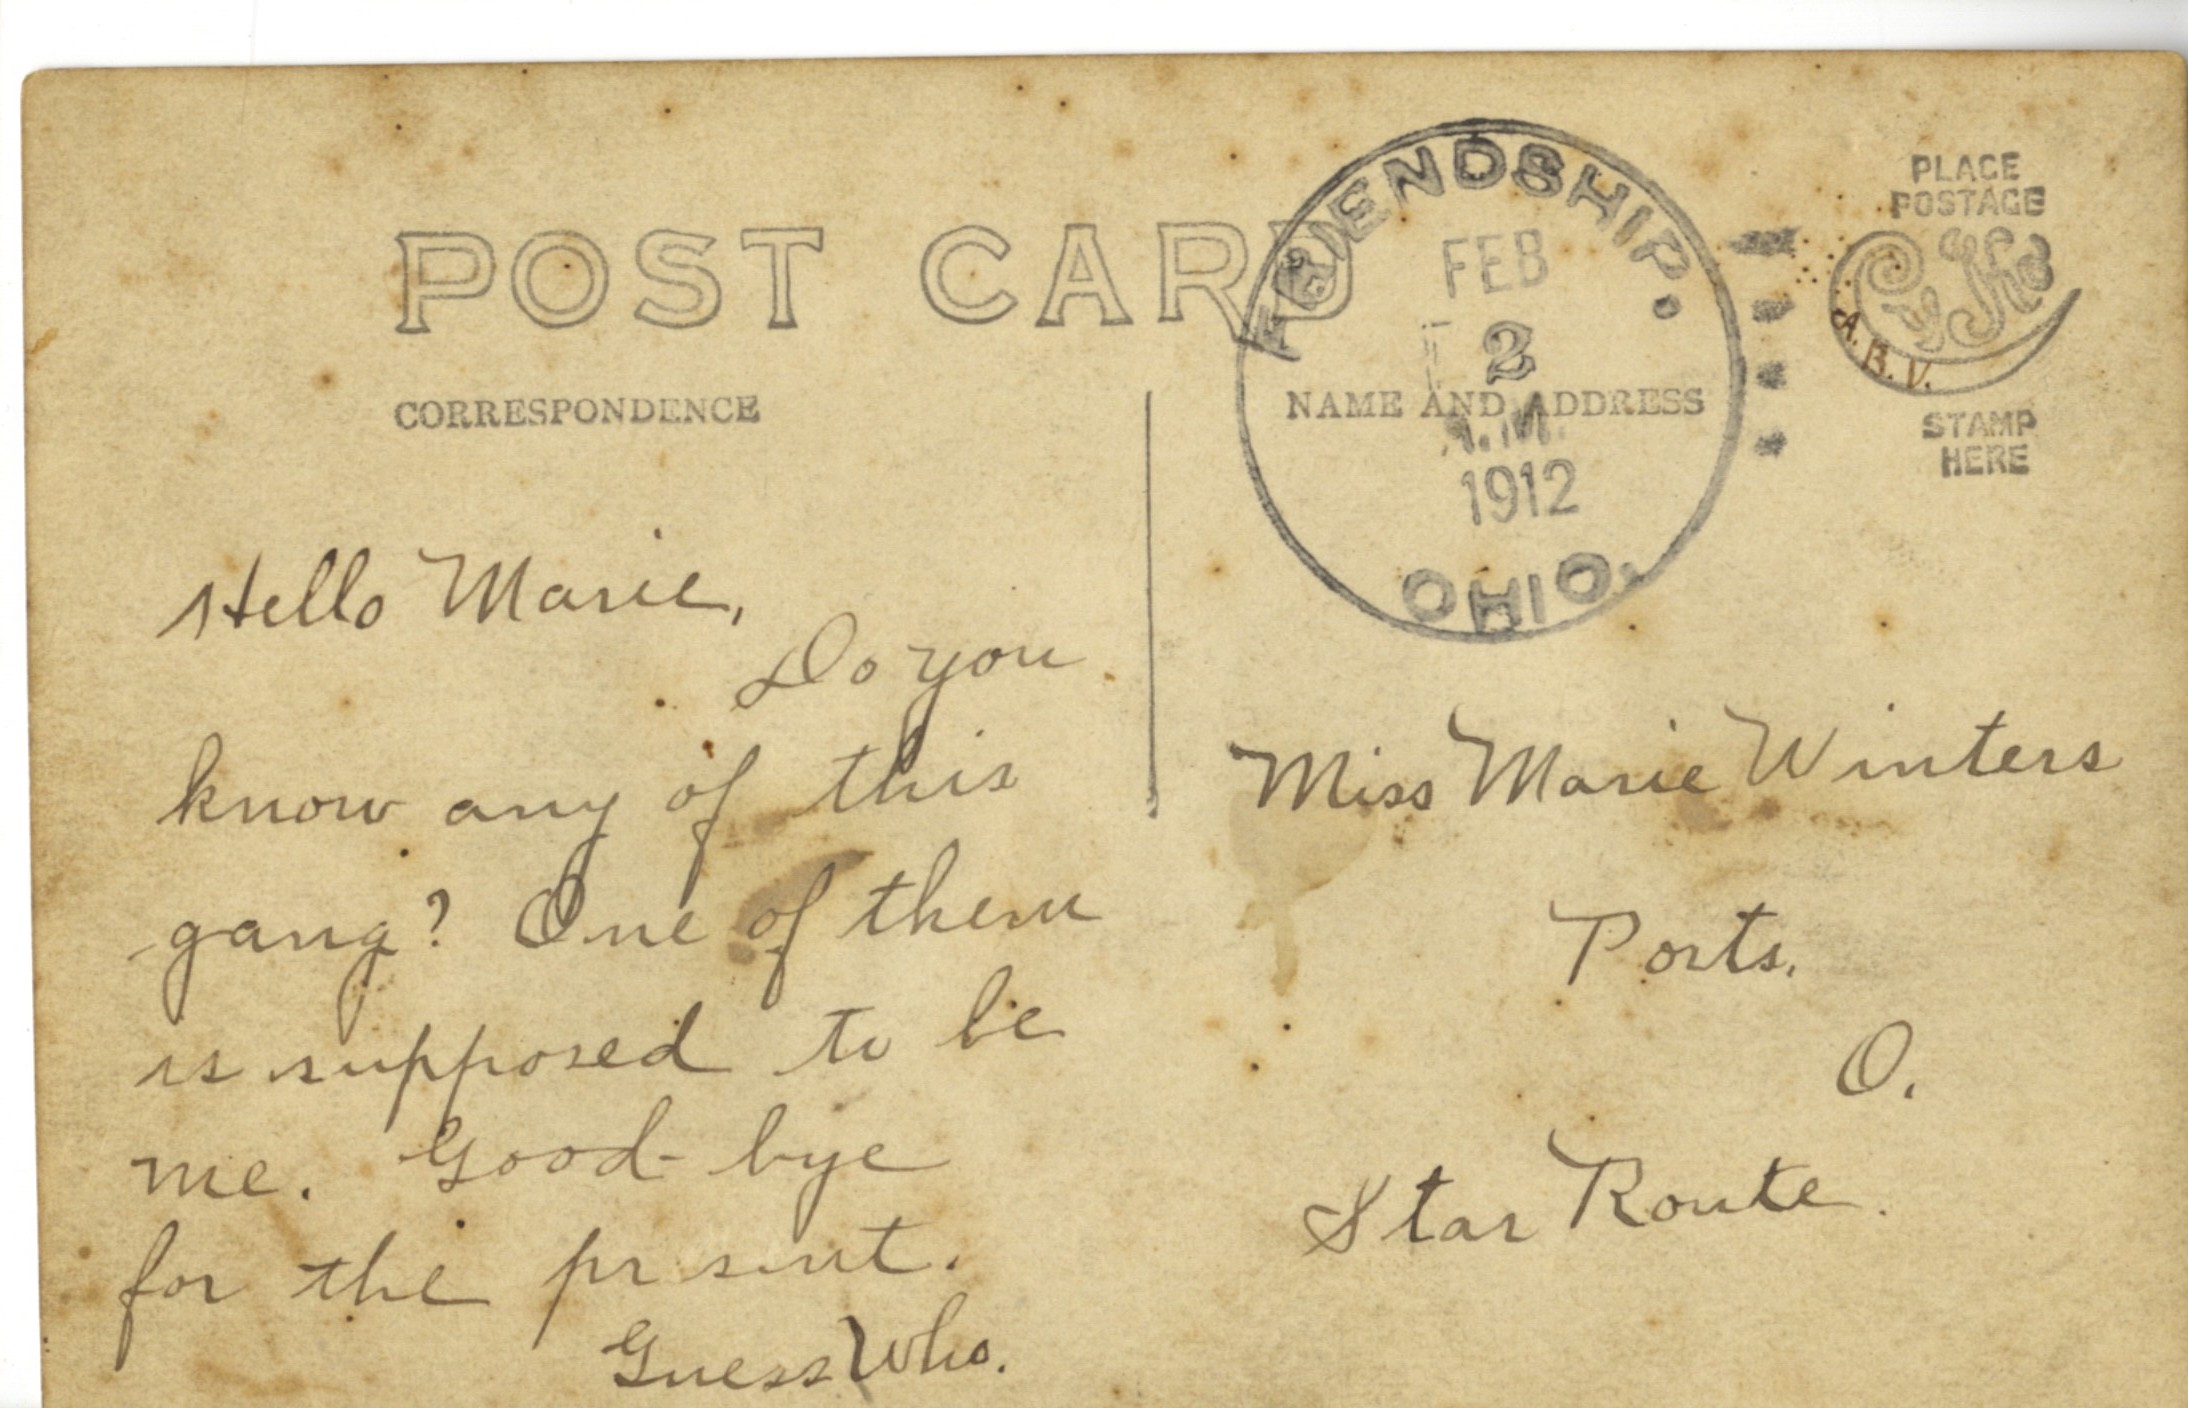 POST CARD
CORRESPONDENCE
Hello Marie,
Do you
know any of this
gang? One of them
is supposed to be
me. Good-bye
for the present.
Guess Who.
FRIENDSHIP.
FEB
2
A.M.
1912
OHIO.
NAME AND ADDRESS
PLACE
POSTAGE
CyKo
A.B.V.
STAMP
HERE
Miss Marie Winters
Ports.
O.
Star Route.